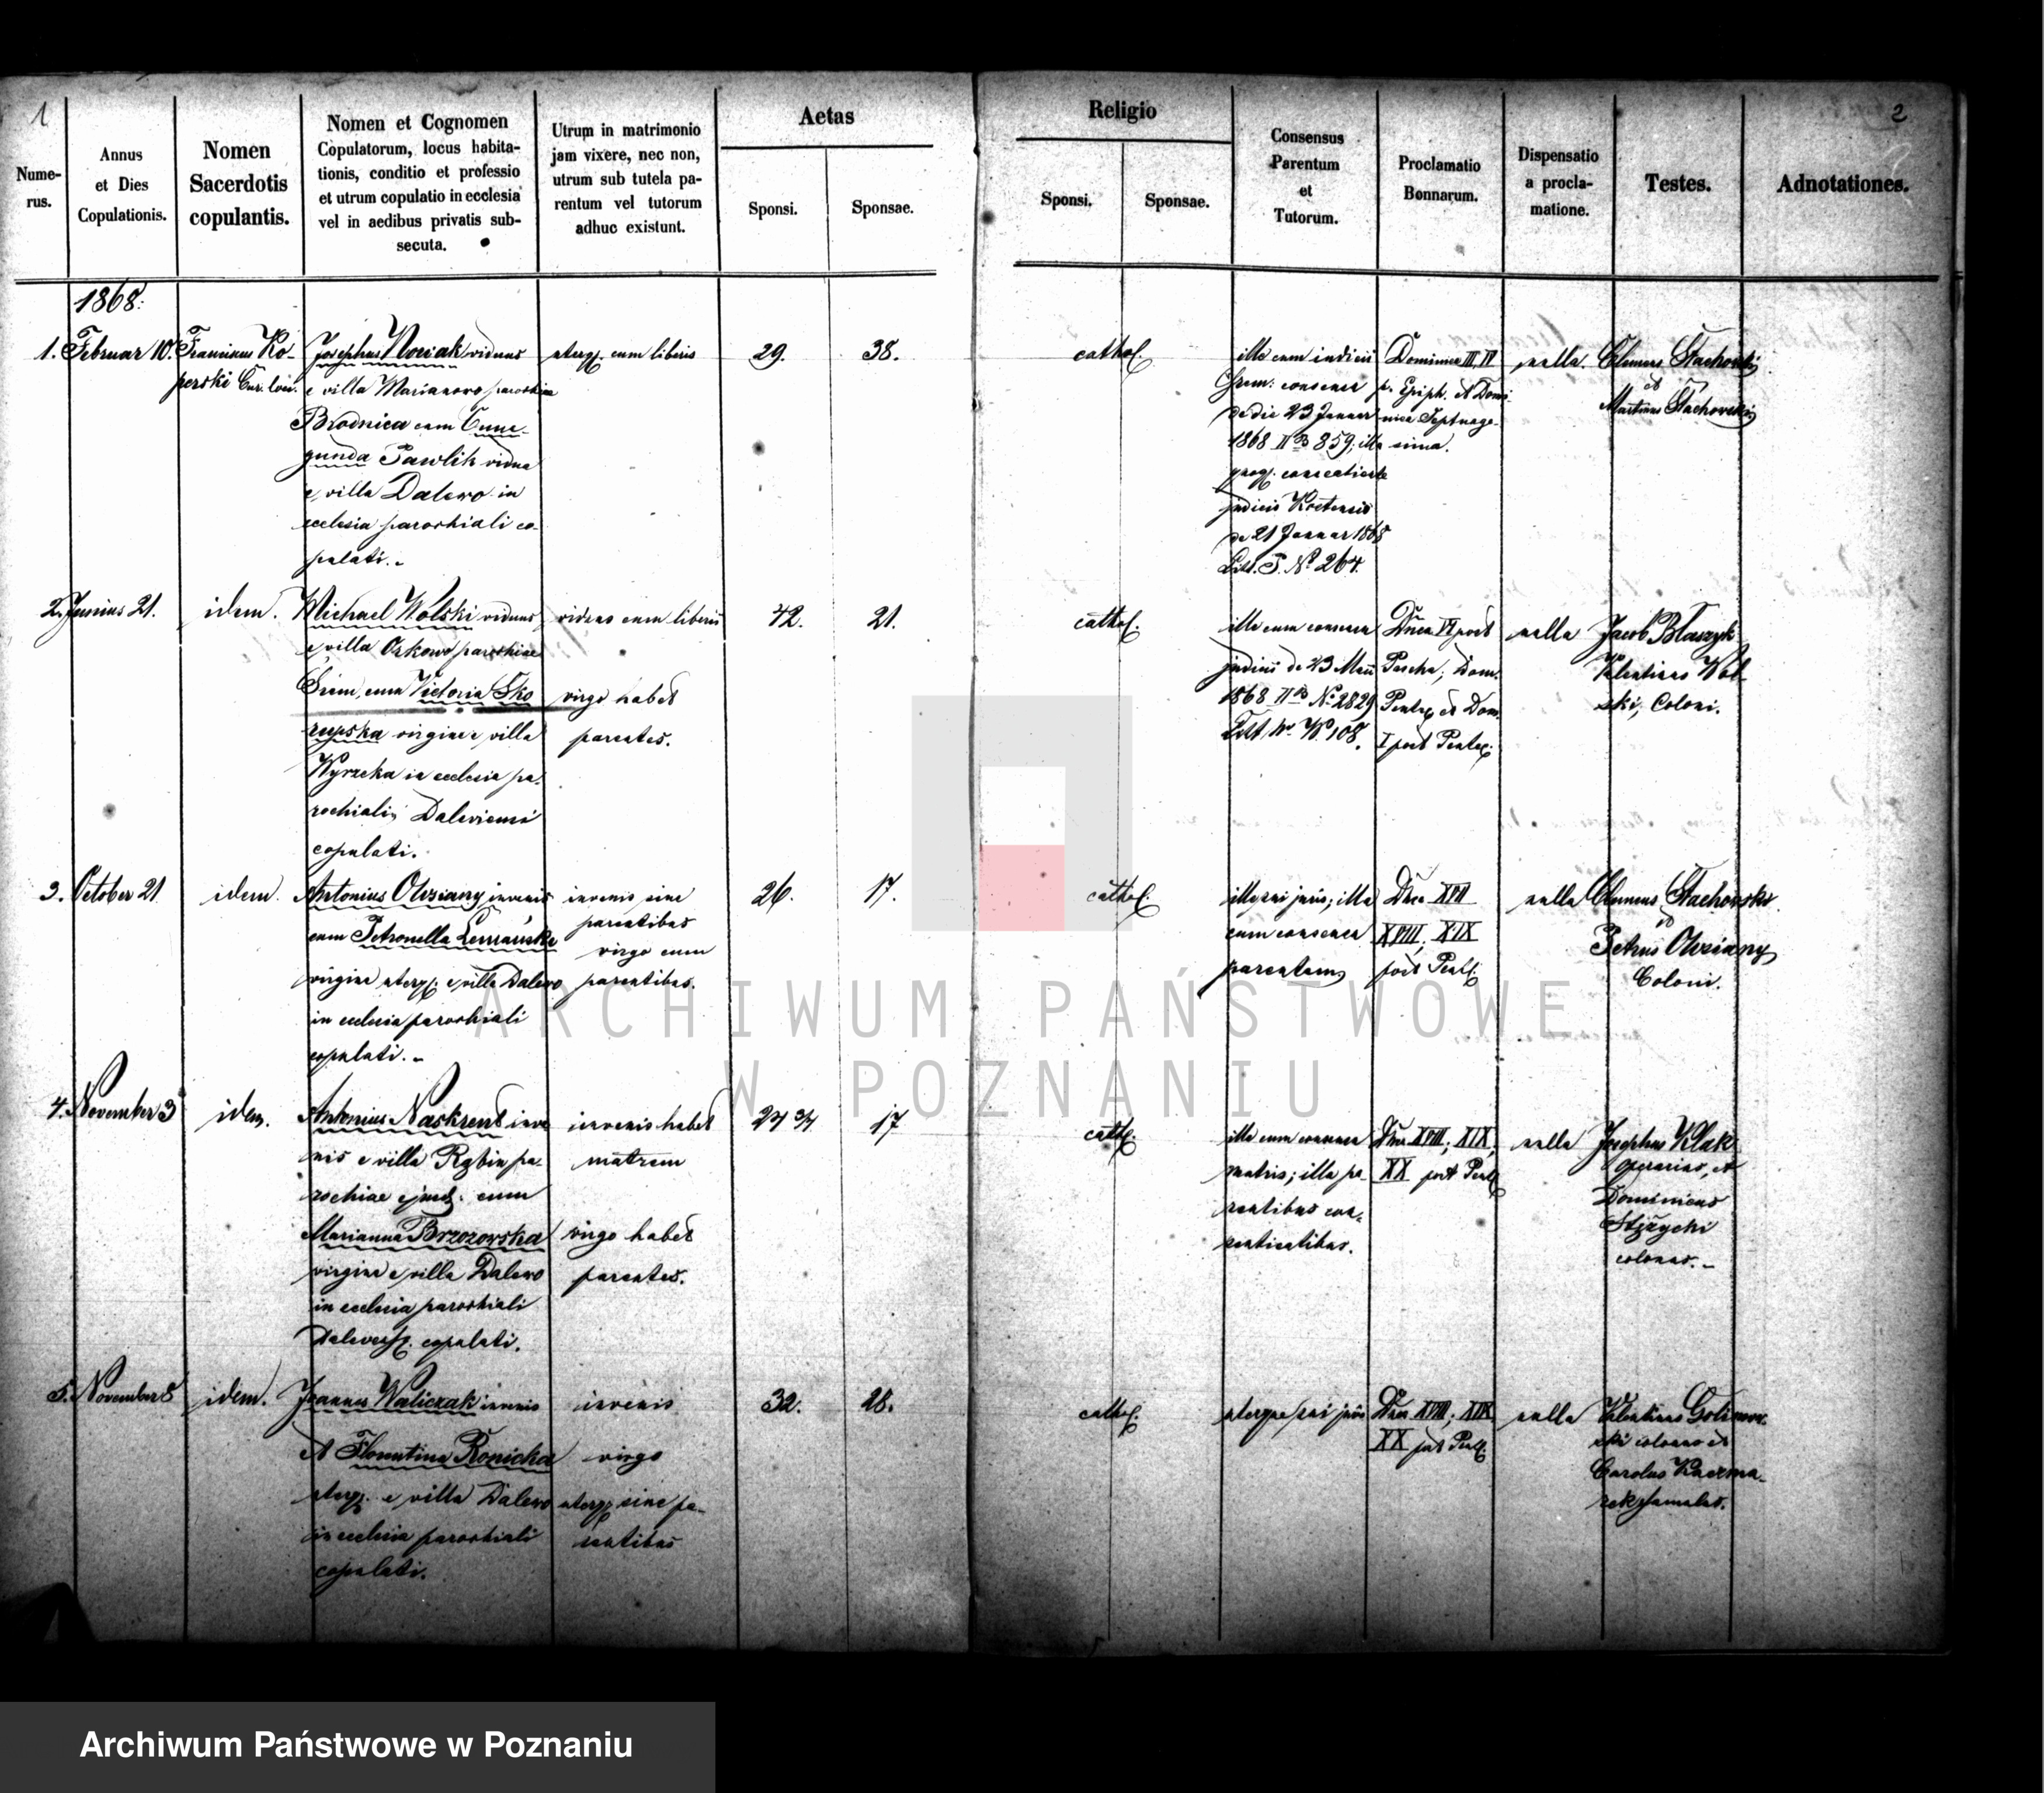 1
2
Numerus.
Annus
et Dies
Copulationis.
Nomen
Sacerdotis
copulantis.
Nomen et Cognomen
Copulatorum, locus habita-
tionis, conditio et professio
et utrum copulatio in ecclesia
vel in aedibus privatis sub-
secuta.
Utrum in matrimonio
jam vixere, nec non,
utrum sub tutela pa-
rentum vel tutorum
adhuc existunt.
Aetas
Sponsi.
Sponsae.
Religio
Sponsi.
Sponsae.
Consensus
Parentum
et
Tutorum.
Proclamatio
Bonnarum.
Dispensatio
a procla-
matione.
Testes.
Adnotationes.
1868.
1. Februar 10.
Franciscus Ko-
perski
Josephus Nowak viduus
e villa Marianowo parochiae
Brodnica cum Cune-
gunda Pawlik vidua
e villa Dalewo in
ecclesia parochiali co-
pulati.
uterq. cum liberis
29.
38.
cathol.
ille cum judicii
Srem: consensu
de die 23 Januar
1868 II B 859; illa
judicii Kostensis
de 21 Januar 1868
Litt. P. No 264.
Dominica III, IV
p. Epiph. et Domi-
nica Septuage-
sima.
nulla.
Clemens Stachowski
et
Martinus Stachowski
2. Junius 21.
idem.
Michael Wolski viduus
e villa Orkowo parochiae
Śrem, cum Victoria Sko
rupska virgine e villa
Wyrzeka in ecclesia pa-
rochiali Daleviensi
copulati.
viduus cum liberis
virgo habet
parentes.
42.
21.
cathol.
ille cum consensu
judicii de 23 Maii
1868 II B No 2829
Litt. W. No 108.
Dnca VI post
Pascha; Dom.
Pentec. et Dom.
I post Pentec.
nulla
Jacob Blaszyk
Valentinus Wol-
ski, Coloni.
3. October 21
idem.
Antonius Olwziany juvenis
cum Petronella Lemańska
virgine uterq. e villa Dalewo
in ecclesia parochiali
copulati.
juvenis sine
parentibus
virgo cum
parentibus.
26.
17.
cathol.
ille sui juris; illa
cum consensu
parentum
Dnca XVII
XVIII, XIX
post Pent.
nulla
Clemens Stachowski
et
Petrus Olwziany
Coloni.
4. November 3
idem.
Antonius Naskrent juve
nis e villa Rąbin pa-
rochiae ejusd. cum
Marianna Brzozowska
virgine e villa Dalewo
in ecclesia parochiali
copulati.
juvenis habet
matrem
virgo habet
parentes.
24 3/4
17
cathol.
ille cum consensu
matris; illa pa-
rentibus con-
sentientibus.
Dnca XVIII, XIX,
XX post Pent.
nulla
Josephus Klak
operarius, et
Dominicus
colonus.
5. November 8
idem.
Joannes Waliczak juvenis
et Florentina Ronicka
uterq. e villa Dalewo
in ecclesia parochiali
copulati.
juvenis
virgo
uterq. sine pa-
rentibus
32.
28.
cathol.
uterque sui juris
Dnca XVIII; XIX
XX post Pent.
nulla
Valentinus Golinow-
ski colonus et
Carolus Kaczma-
rek famulus.
ARCHIWUM PAŃSTWOWE
W POZNANIU
Archiwum Państwowe w Poznaniu